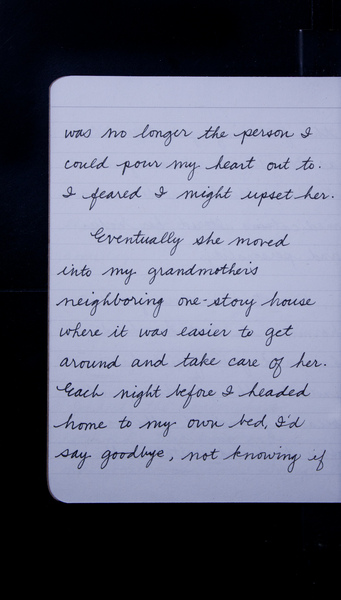 was no longer the person I
could pour my heart out to.
I feared I might upset her.
Eventually she moved
into my grandmother's
neighboring one-story house
where it was easier to get
around and take care of her.
Each night before I headed
home to my own bed, I'd
say goodbye, not knowing if